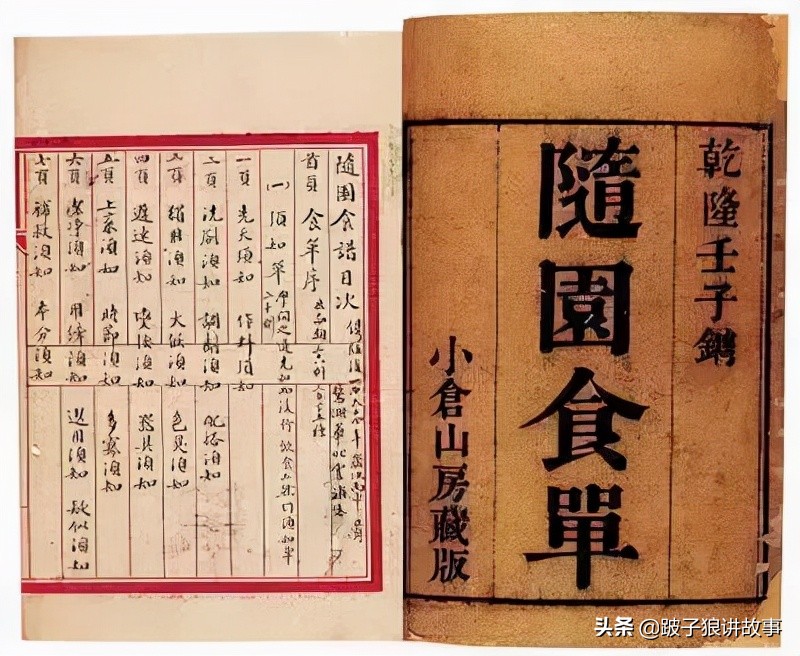 乾隆壬子鐫
隨園食單
小倉山房藏版
隨園食譜目次
首頁 食單序
(一) 須知單
一頁 先天須知 作料須知
二頁 洗刷須知 調劑須知 配搭須知
三頁 獨用須知 火候須知 色臭須知
四頁 遲速須知 變換須知 器具須知
五頁 上菜須知 時節須知 多寡須知
六頁 潔淨須知 用纖須知 選用須知 疑似須知
七頁 補救須知 本分須知
头条 @跛子狼讲故事